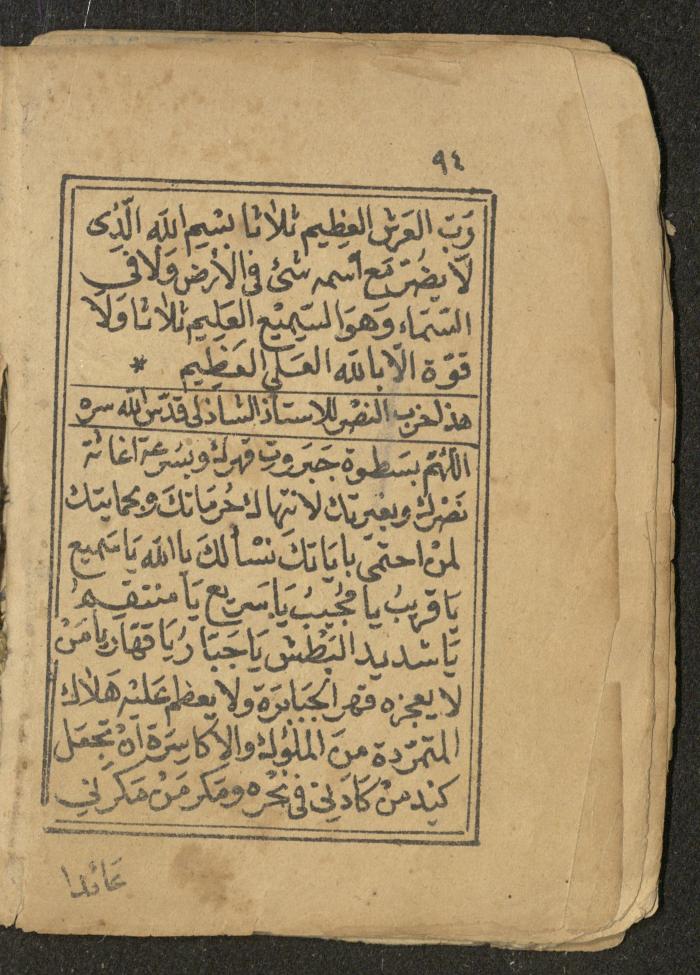 ٩٤
رَبّ العَرش العَظِيم ثلاثا بسْيم الله الّذِى
لَا يضُرّ مَع اسمه شئ في الأرض وَلا في
السّماء وَهوَ السّمِيْع العَلِيم ثلاثا وَلا
قوّة الّا بالله العَلي العَظِيم *
هذا حزب النصْر للاستاذ الشاذلى قدّس الله سره
اللّهمّ بسَطوة جَبَروتِ قهرك وبسَرعة اغاثة
نَصْرك وبغيرتك لانتهاك حُرمَاتكَ وبحمايتك
لمنْ احتمى بايَاتكَ نسْألكَ يا الله يَا سَميع
يَا قريبُ يا مجُيبُ يَا سَريع يَا منتقِمُ
يَا شديد البَطش يَا جَبّارُ يَا قهّار يا مَنْ
لا يعجزه قهر الجبَابرَة ولا يعظم عَليْه هَلاك
المتمرّدة منَ الملُوك والأكاسِرَة أنْ تجعَل
كيْد منْ كادَنِى فى نحْره ومَكر مَنْ مَكرَ بي
عَائدا